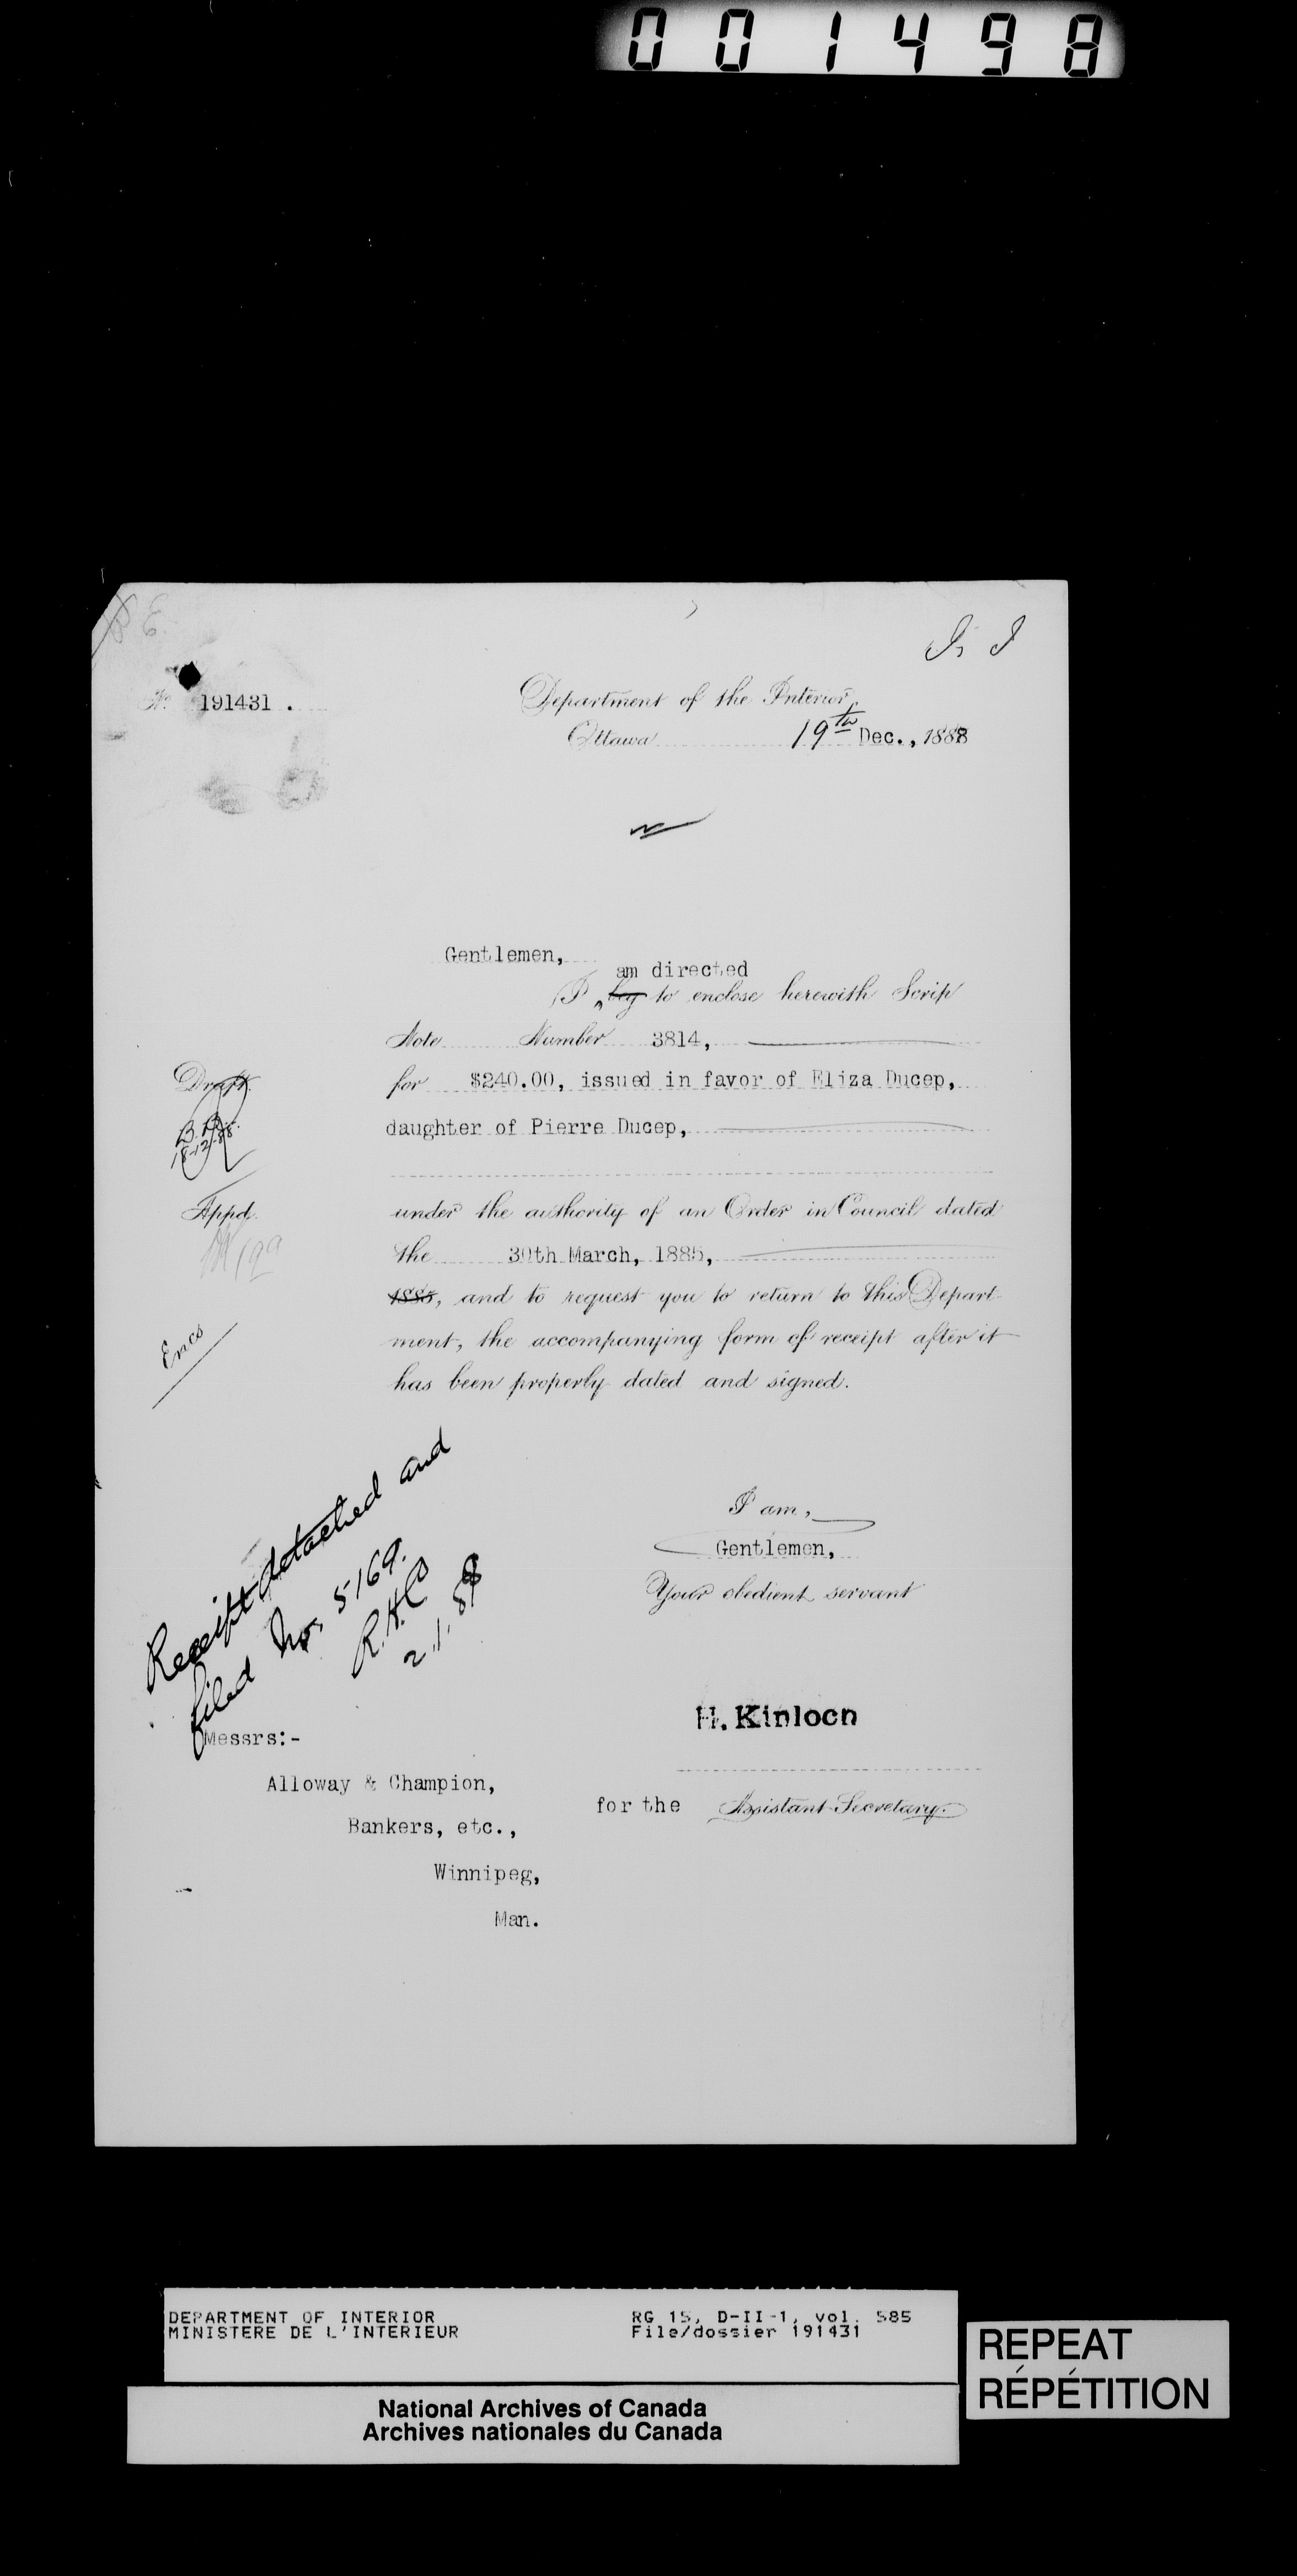 001498
No. 191431.
Department of the Interior,
Ottawa 19th Dec., 1888
Gentlemen,
am directed
I beg to enclose herewith Scrip
Note Number 3814,
for $240.00, issued in favor of Eliza Ducep,
daughter of Pierre Ducep,
under the authority of an Order in Council dated
the 30th March, 1885,
1885, and to request you to return to this Depart-
ment, the accompanying form of receipt after it
has been properly dated and signed.
Draft
18-12-88.
Appd.
Encs
Receipt detached and
filed No. 5169.
2.1.89
I am,
Gentlemen,
Your obedient servant
H. Kinloch
for the Assistant Secretary.
Messrs:-
Alloway & Champion,
Bankers, etc.,
Winnipeg,
Man.
DEPARTMENT OF INTERIOR
MINISTERE DE L'INTERIEUR
RG 15, D-II-1, vol. 585
File/dossier 191431
REPEAT
RÉPÉTITION
National Archives of Canada
Archives nationales du Canada